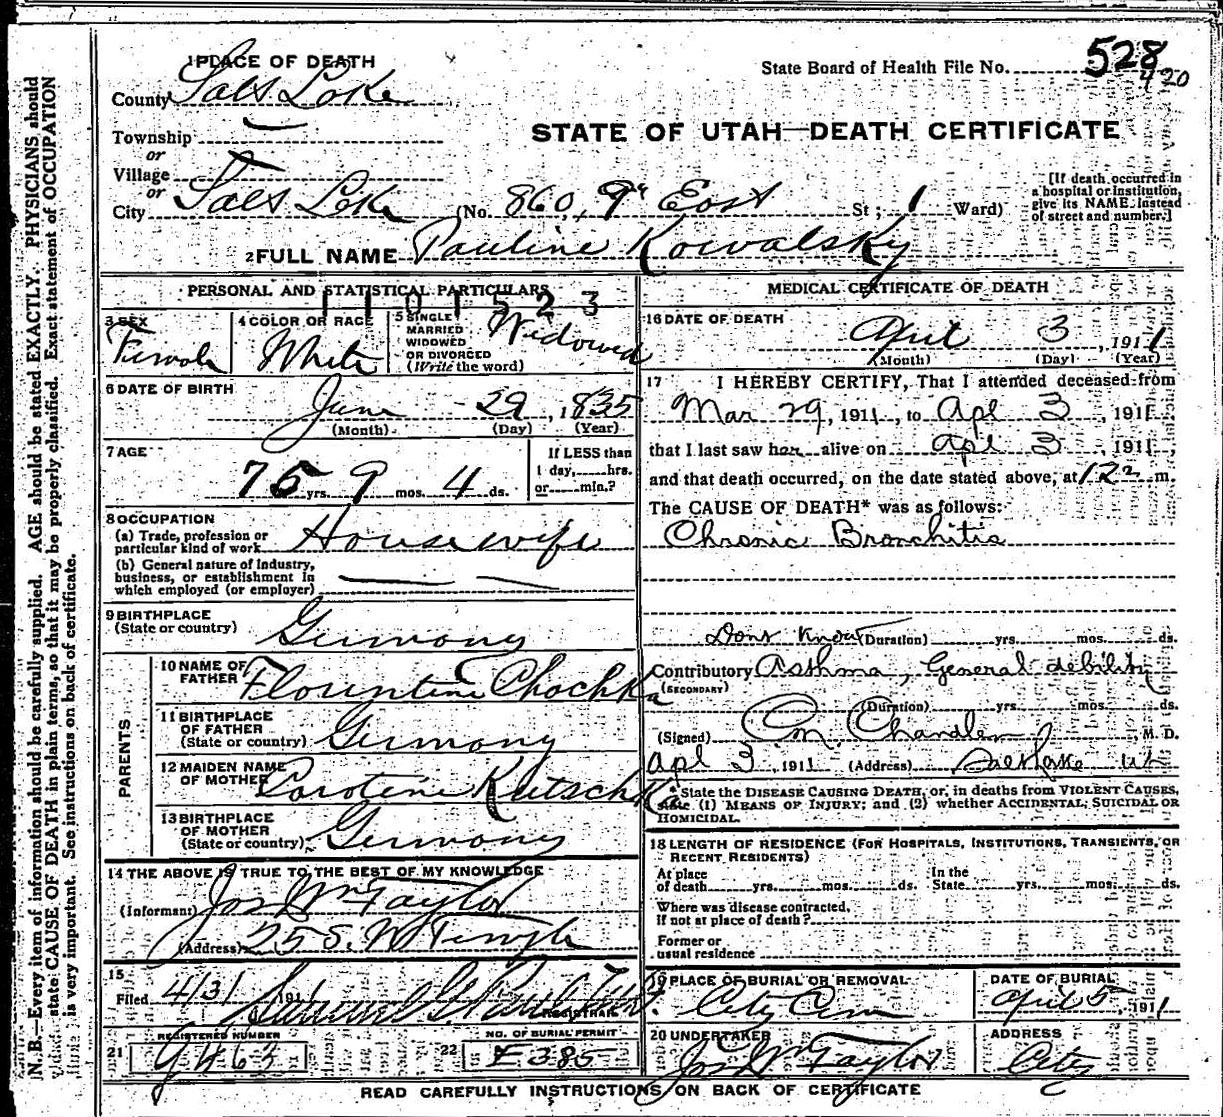 N.B.—Every item of information should be carefully supplied. AGE should be stated EXACTLY. PHYSICIANS should
state CAUSE OF DEATH in plain terms, so that it may be properly classified. Exact statement of OCCUPATION
is very important. See instructions on back of certificate.
1 PLACE OF DEATH
State Board of Health File No. 528
420
County Salt Lake
STATE OF UTAH—DEATH CERTIFICATE
Township
or
Village
or
City Salt Lake (No. 860, 9" East St; 1 Ward)
[If death occurred in
a hospital or institution,
give its NAME instead
of street and number.]
2 FULL NAME Pauline Kowalsky
PERSONAL AND STATISTICAL PARTICULARS
1101523
3 SEX
Female
4 COLOR OR RACE
White
5 SINGLE
MARRIED
WIDOWED
OR DIVORCED
(Write the word)
Widowed
6 DATE OF BIRTH
June 29, 1835
(Month) (Day) (Year)
7 AGE
75 yrs. 9 mos. 4 ds.
If LESS than
1 day, hrs.
or min.?
8 OCCUPATION
(a) Trade, profession or
particular kind of work Housewife
(b) General nature of Industry,
business, or establishment in
which employed (or employer)
9 BIRTHPLACE
(State or country) Germany
PARENTS
10 NAME OF
FATHER Florentine Chochka
11 BIRTHPLACE
OF FATHER
(State or country) Germany
12 MAIDEN NAME
OF MOTHER Caroline Kutschka
13 BIRTHPLACE
OF MOTHER
(State or country) Germany
14 THE ABOVE IS TRUE TO THE BEST OF MY KNOWLEDGE
(Informant) Jos Wm Taylor
(Address) 25 S. W Temple
15
Filed 4/3/ 191
REGISTRAR
REGISTERED NUMBER
21 G463
NO. OF BURIAL PERMIT
22 E385
MEDICAL CERTIFICATE OF DEATH
16 DATE OF DEATH
April 3, 1911
(Month) (Day) (Year)
17 I HEREBY CERTIFY, That I attended deceased from
Mar 29, 1911, to Apl 3, 1911
that I last saw her alive on Apl 3, 1911,
and that death occurred, on the date stated above, at m.
The CAUSE OF DEATH* was as follows:
Chronic Bronchitis
Dont Know (Duration) yrs. mos. ds.
Contributory Asthma, General debility
(SECONDARY)
(Duration) yrs. mos. ds.
(Signed) Chandler M. D.
Apl 3, 1911 (Address) Salt Lake Ut
* State the DISEASE CAUSING DEATH, or, in deaths from VIOLENT CAUSES,
state (1) MEANS OF INJURY; and (2) whether ACCIDENTAL, SUICIDAL OR
HOMICIDAL.
18 LENGTH OF RESIDENCE (FOR HOSPITALS, INSTITUTIONS, TRANSIENTS, OR
RECENT RESIDENTS)
At place
of death yrs. mos. ds.
In the
State yrs. mos. ds.
Where was disease contracted,
If not at place of death?
Former or
usual residence
19 PLACE OF BURIAL OR REMOVAL
City Cem
DATE OF BURIAL
April 5, 1911
20 UNDERTAKER
Jos Wm Taylor
ADDRESS
City
READ CAREFULLY INSTRUCTIONS ON BACK OF CERTIFICATE